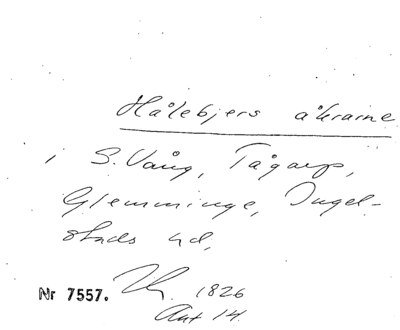 Hålebjers åkrarne
i S. Vång, Tågarp,
Glemminge, Ingel-
stads hd,
Nr 7557. 1826
Akt 14.